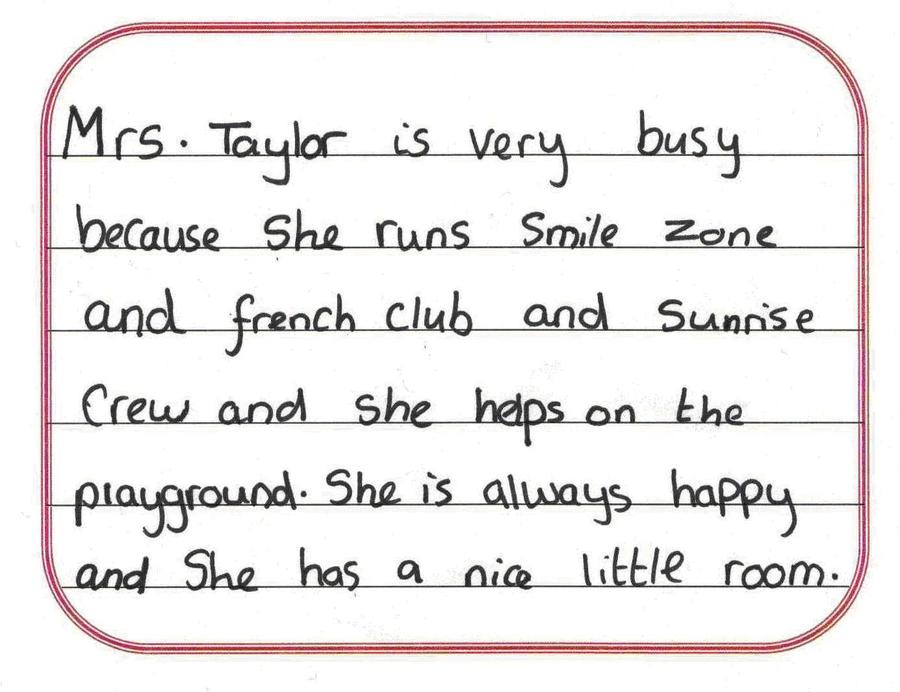 Mrs. Taylor is very busy
because She runs Smile Zone
and french club and Sunrise
Crew and she helps on the
playground. She is always happy
and She has a nice little room.